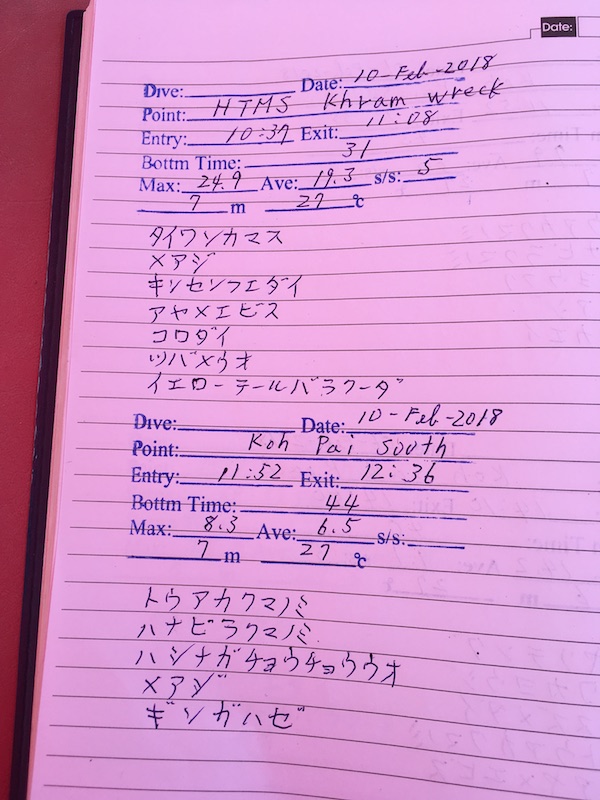 Date:
Dive: Date: 10-Feb-2018
Point: HTMS Khram wreck
Entry: 10:37 Exit: 11:08
Bottm Time: 31
Max: 24.9 Ave: 19.3 s/s: 5
7 m 27 ℃
タイワンカマス
メアジ
キンセンフエダイ
アヤメエビス
コロダイ
ツバメウオ
イエローテールバラクーダ
Dive: Date: 10-Feb-2018
Point: Koh Pai south
Entry: 11:52 Exit: 12:36
Bottm Time: 44
Max: 8.3 Ave: 6.5 s/s:
7 m 27 ℃
トウアカクマノミ
ハナビラクマノミ
ハシナガチョウチョウウオ
メアジ
ギンガハゼ